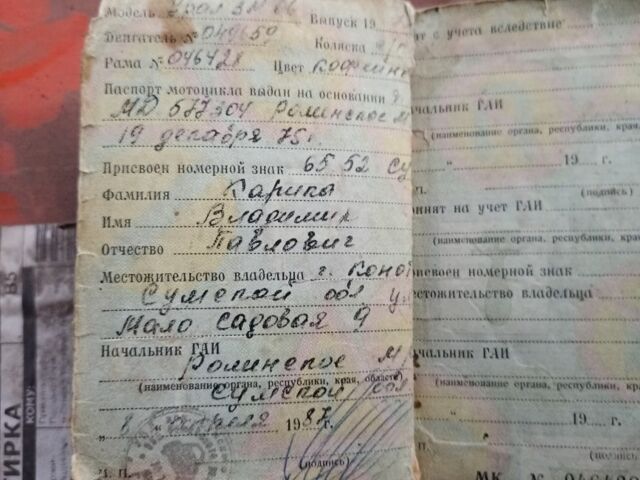 Модель Урал 3М 66 Выпуск 19
Двигатель № 049659 Коляска
Рама № 046428 Цвет
Паспорт мотоцикла выдан на основании
МД 577304 Роменское М
19 декабря 75г.
Присвоен номерной знак 65 52 СУ
Фамилия
Имя Владимир
Отчество Павлович
Местожительство владельца г. Коно
Сумской обл у
Мало Садовая 9
Начальник ГАИ
Роменское М
(наименование органа, республики, края, области)
Сумской обл
апреля 1987г.
(подпись)
М. П.
т с учета вследствие
чальник ГАИ
(наименование органа, республики, края
" 19 г.
(подпись)
инят на учет ГАИ
(наименование органа, республики, края
исвоен номерной знак
естожительство владельца
чальник ГАИ
(наименование органа, республики, края
" 19 г.
(подпись)
МК №
ТИРКА
КОНУ:
В5